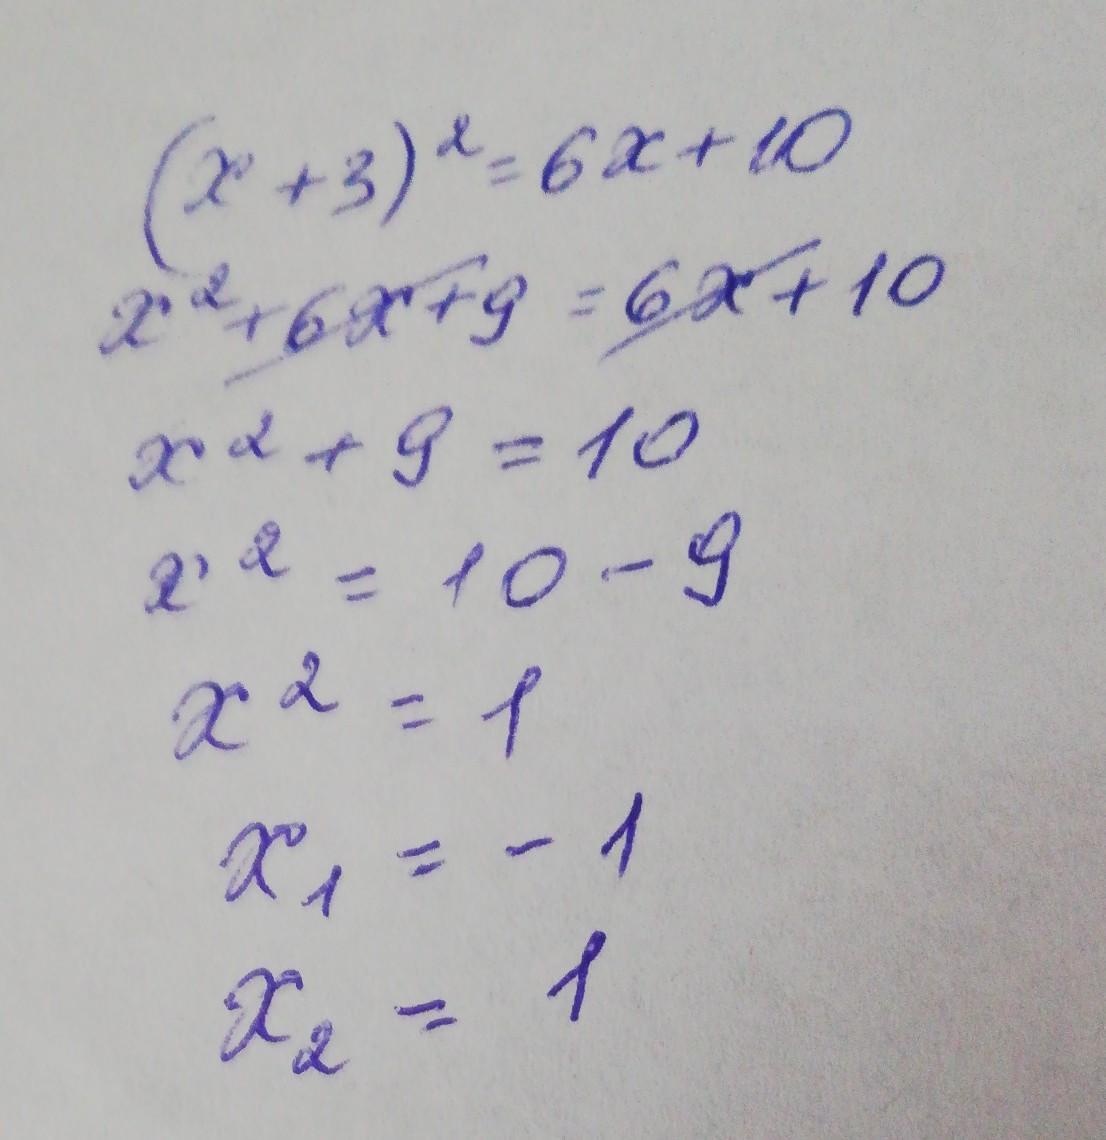 (x+3)² = 6x+10
x²+6x+9 = 6x+10
x²+9 = 10
x² = 10-9
x² = 1
x₁ = -1
x₂ = 1